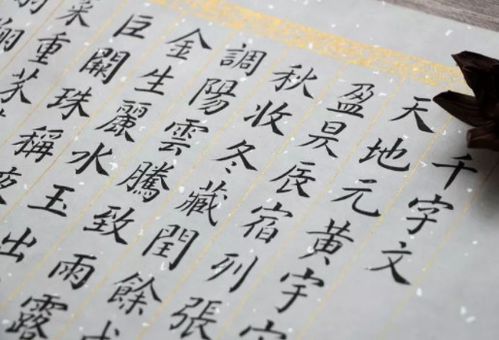 千字文
天地元黃宇
盈昃辰宿列張
秋收冬藏閏餘
調陽雲騰致雨露
金生麗水玉出
巨闕珠稱夜
菜重芥
翔